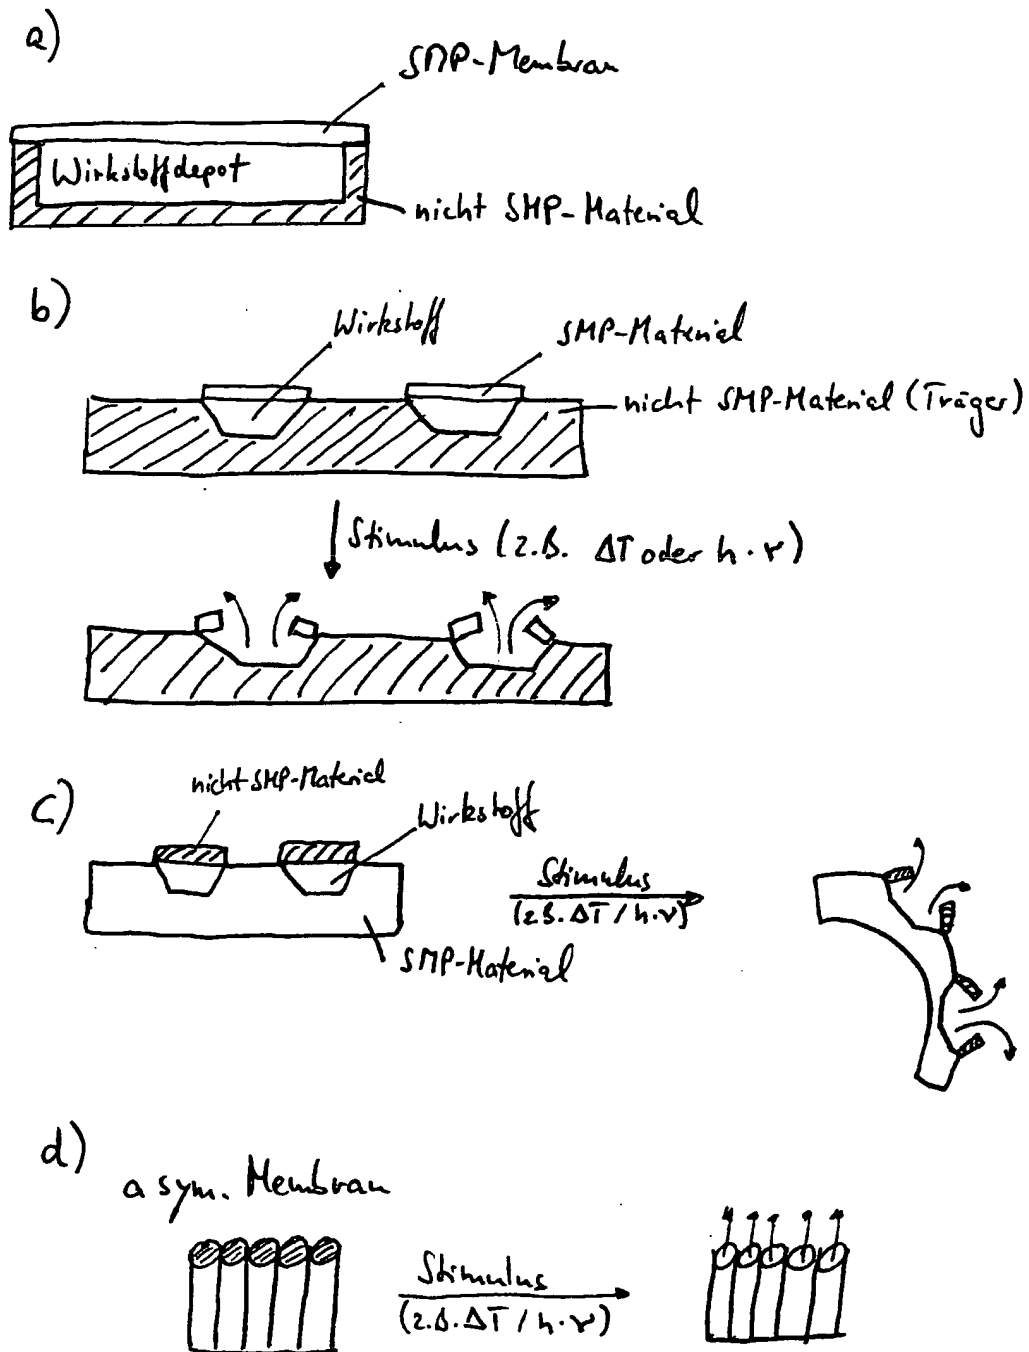 a)
SMP-Membran
Wirkstoffdepot
nicht SMP-Material
b)
Wirkstoff
SMP-Material
nicht SMP-Material (Träger)
Stimulus (z.B. ΔT oder h·ν)
c)
nicht SMP-Material
Wirkstoff
Stimulus
(z.B. ΔT / h·ν)
SMP-Material
d)
asym. Membran
Stimulus
(z.B. ΔT / h·ν)